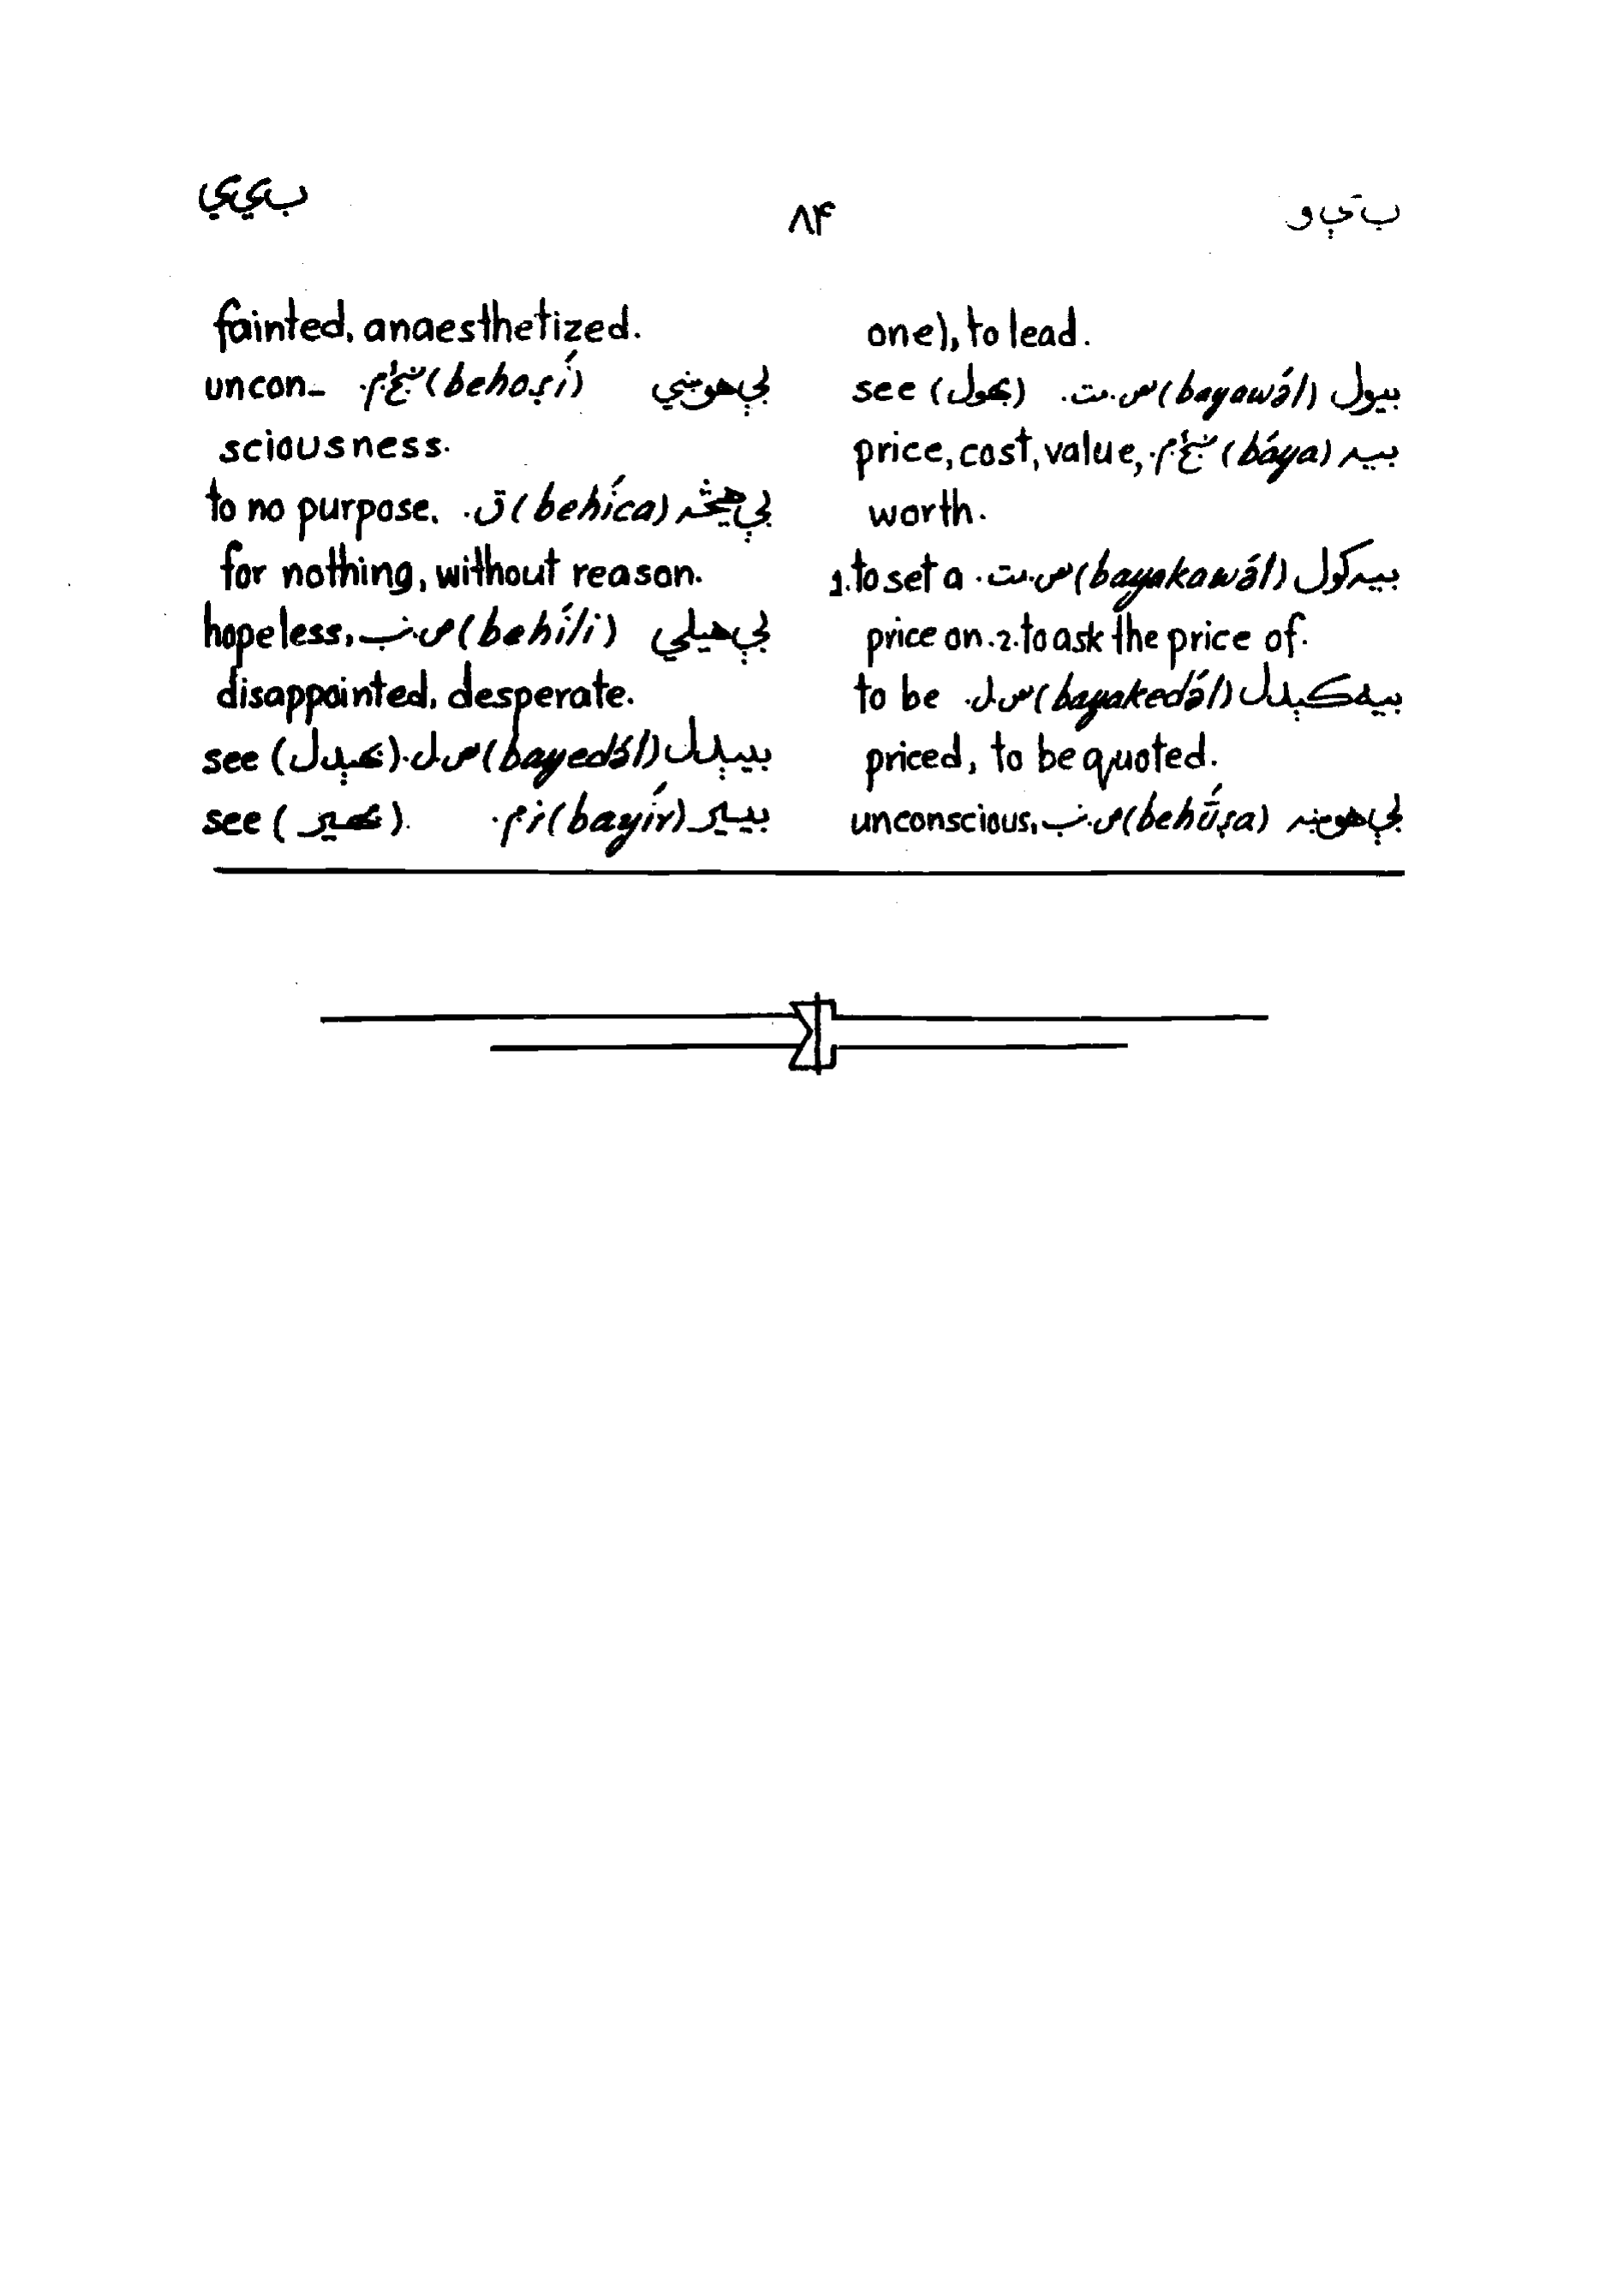 ب ې و
۸۴
ب ي ي
one), to lead.
بيول (bayawə́l) see (بهول)
بيه (báya) price, cost, value,
worth.
بيه کول (bayakawə́l) 1. to set a
price on. 2. to ask the price of.
بيه کېدل (bayakedə́l) to be
priced, to be quoted.
بې هوښه (behūṣ̌a) ص.ن. unconscious,
fainted, anaesthetized.
بې هوښي (behoṣ̌í) uncon-
sciousness.
بې هيڅه (behíca) ق. to no purpose,
for nothing, without reason.
بې هيلي (behíli) ص.ن. hopeless,
disappointed, desperate.
بيېدل (bayedə́l) see (بهېدل).
بيير (bayír) see (بهير).